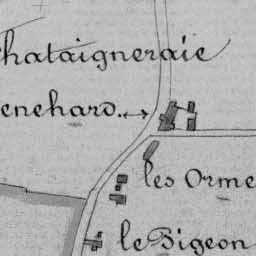 hataigneraie
enehard.
les Orme
le Pigeon